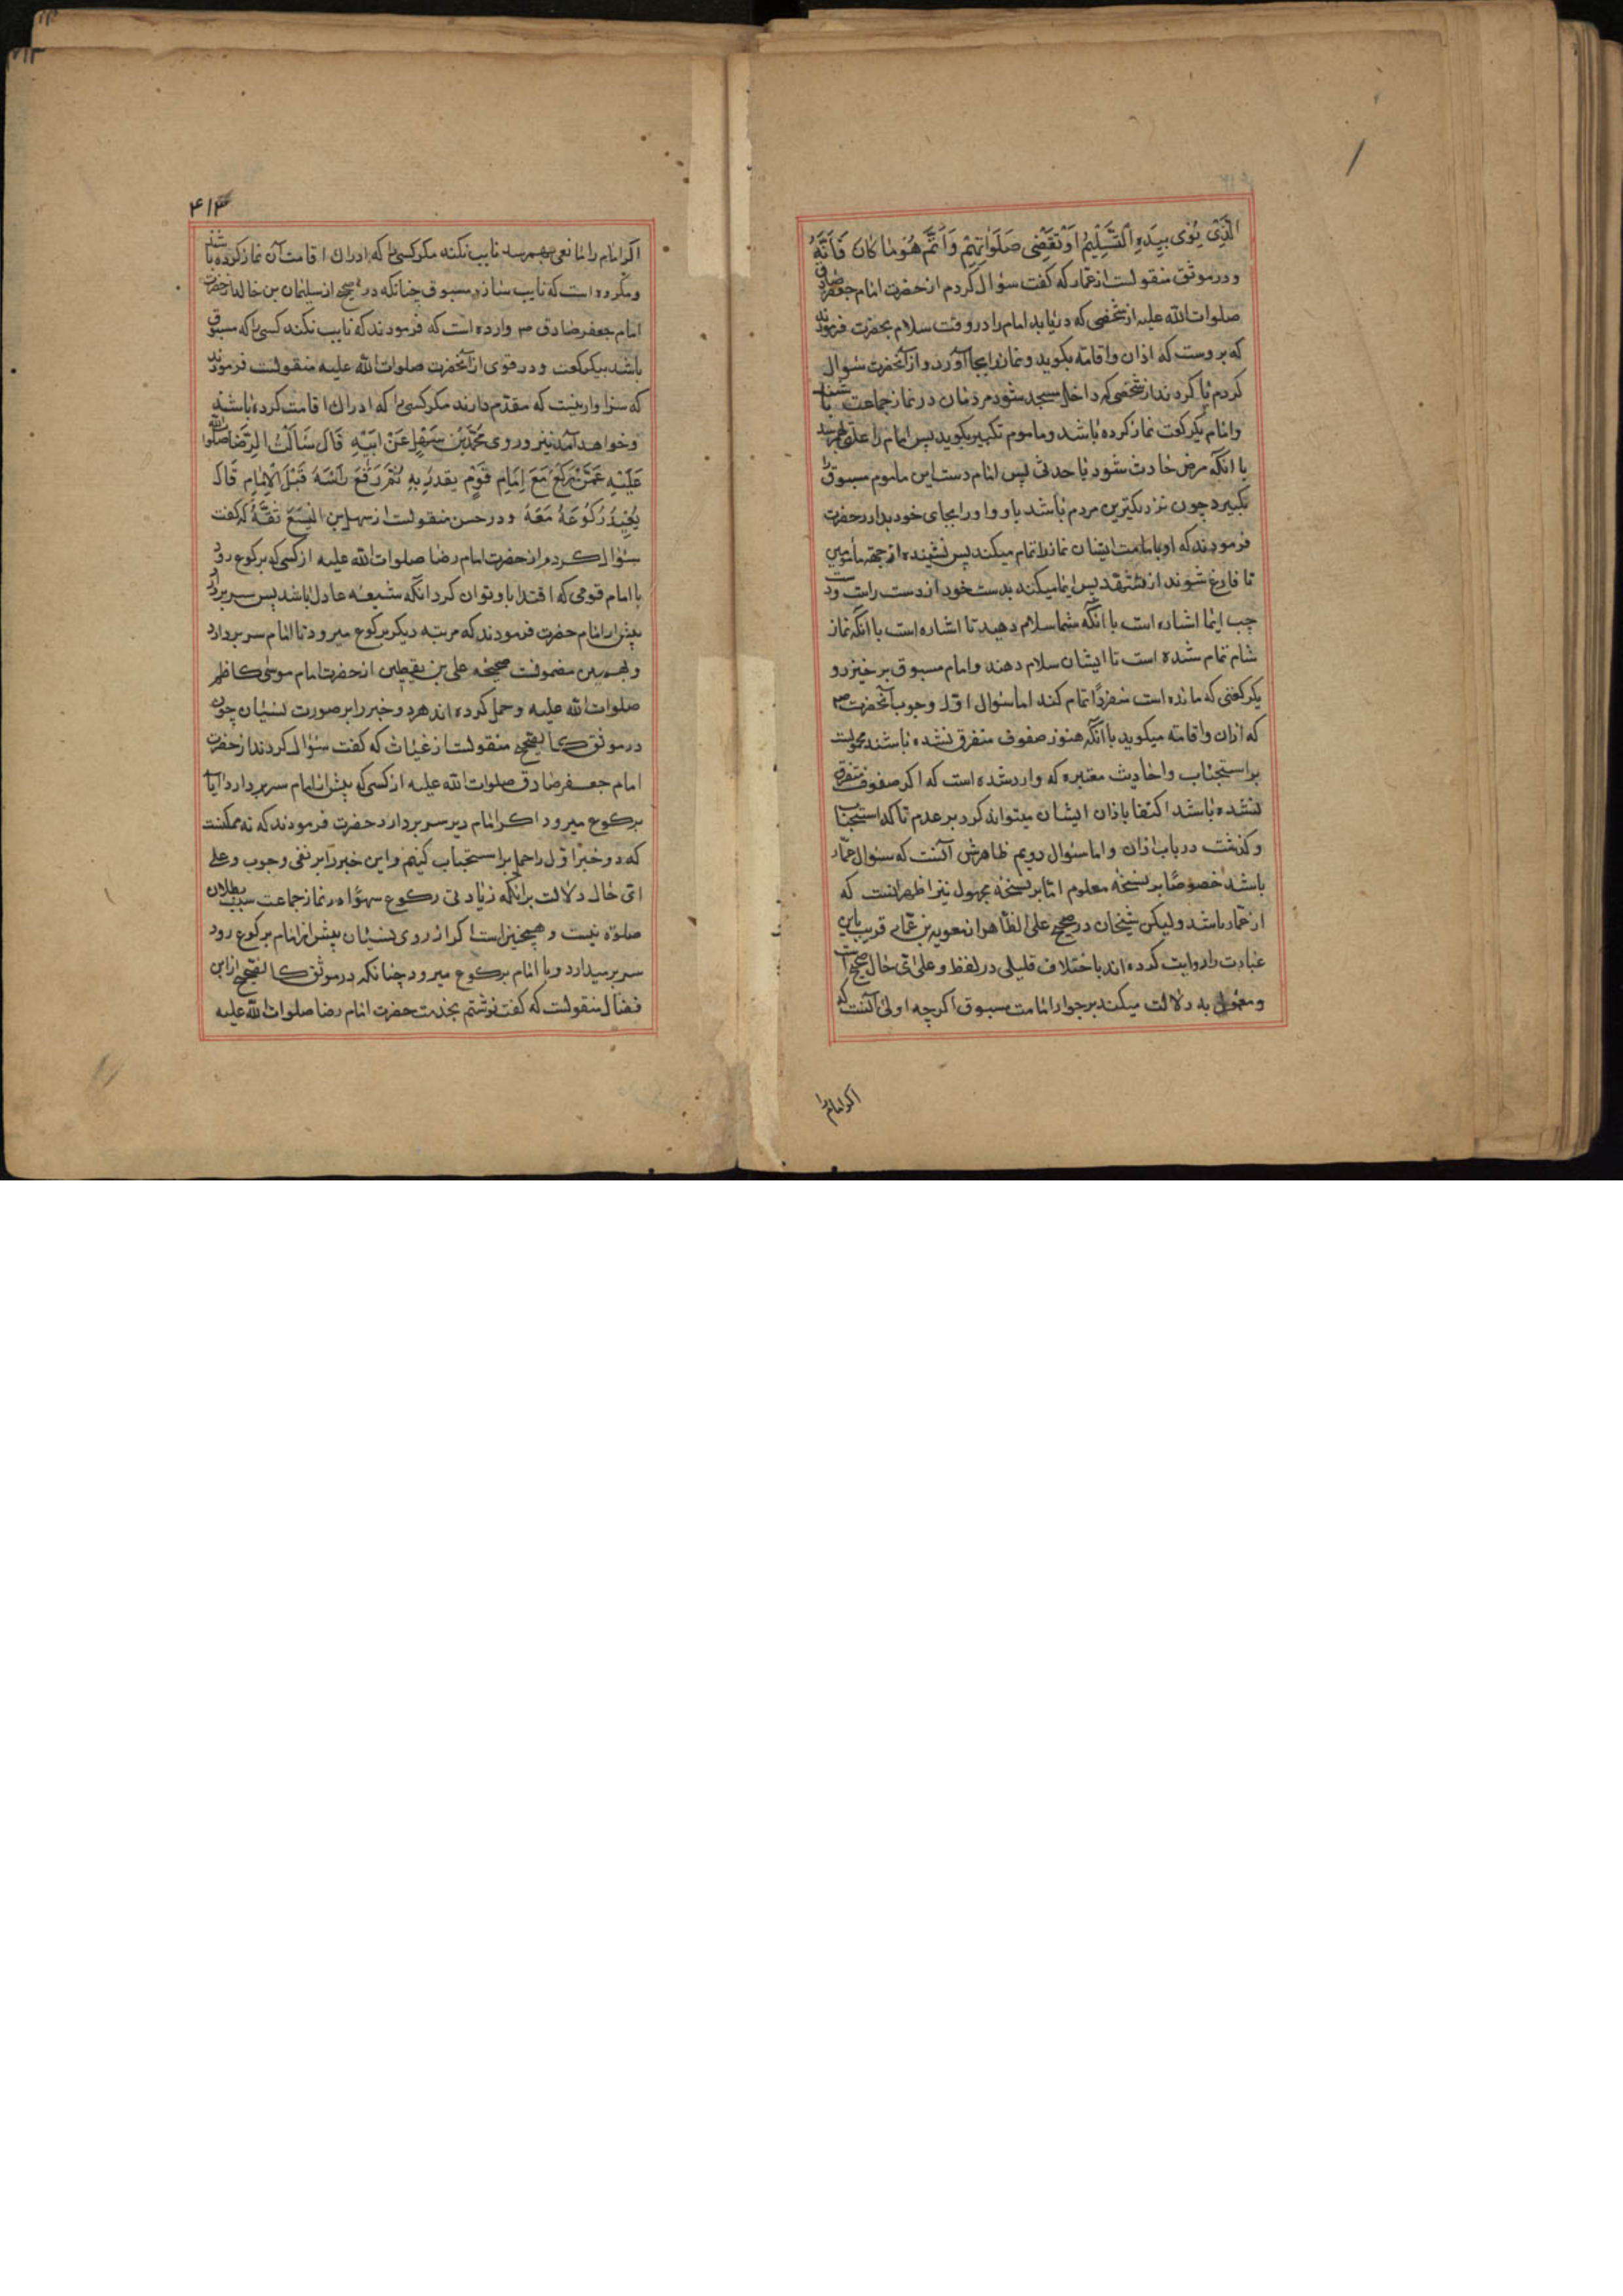 الَّذِی یُوْمی بِیَدِهِ اِلَی التَّسْلِیْمُ اَوْ تَقَضِّی صَلَوٰاتِهِمْ وَاَتَمَّ هُوَ مٰا کٰانَ فَاتَهُ
و در موثق منقولست از عمار که کفت سؤال کردم از حضرت امام جعفر صادق
صلوات الله علیه از شخصی که دریابد امام را در وقت سلام حضرت فرمودند
که بروست که اذان و اقامة بکوید و نماز را بجا آورد و از آنحضرت سئوال
کردم یا کردند از شخصی که داخل مسجد شود مردمان در نماز جماعت باشند
و امام یکرکعت نماز کرده باشد و ماموم تکبیر بکوید پس امام را علتی بهم رسد
یا انکه مرض حادث شود یا حدثی پس امام دست این ماموم مسبوق را
بکیرد چون نزدیکترین مردم باشد باو و او را بجای خود بدارد حضرت
فرمودند که او بامامت ایشان نماز را تمام میکند پس نشیند از جهة مأمومین
تا فارغ شوند از تشهد پس ایما میکند بدست خود از دست راست و دست
چپ ایما اشاره است با آنکه شما سلام دهید تا اشاره است با انکه نماز
شام تمام شده است تا ایشان سلام دهند و امام مسبوق بر خیزد و
یکرکعتی که مانده است منفردًا تمام کند اما سئوال اول وجوب آنحضرت ص
که اذان و اقامته میکوید با آنکه هنوز صفوف متفرق نشده باشند محمولست
بر استحباب و احادیث معتبره که وارد شده است که اکر صفوف متفرق
نشده باشد اکتفا باذان ایشان میتواند کرد بر عدم تاکد استحباب
و کذشت در باب اذان و اما سئوال دویم ظاهرش آنست که سئوال عمّار
باشد خصوصًا بر نسخه معلوم امّا بر نسخه مجهول نیز اظهر انست که
از عمّار باشد ولیکن شیخان در صحیح علی الظاهر از معویه بن عمّار قریب باین
عبارت را روایت کرده اند باختلاف قلیلی در لفظ و علی ای حال صحیح است
و معمول به دلالت میکند بر جواز امامت مسبوق اکرچه اولی آنست که
اکر امام را
۴۱۴
اکر امام را مانعی بهم رسد نایب نکند مکر کسی را که ادراک اقامت آن نماز کرده باشد
و مکروه است که نایب سازد مسبوق چنانکه در صحیح از سلیمان بن خالد از حضرت
امام جعفر صادق ص وارد است که فرمودند که نایب نکند کسی را که مسبوق
باشد بیکرکعت و در قوی از آنحضرت صلوات الله علیه منقولست فرمودند
که سزاوار نیست که مقدم دارند مکر کسی را که ادراک اقامت کرده باشد
و خواهد آمد نیز و روی مُحَمَّدُ بْنُ سَهْلٍ عَنْ اَبِیْهِ قَالَ سَاَلْتُ الرِّضَا صلوات الله
عَلَیْهِ عَمَّنْ یَرْکَعُ مَعَ اِمَامِ قَوْمٍ یقتدی بِهِ ثُمَّ رَفَعَ رَاْسَهُ قَبْلَ الْاِمَامِ قَالَ
یُعِیْدُ رُکُوْعَهُ مَعَهُ و در حسن منقولست از سهل بن الیسع ثقه که کفت
سئوال کردم از حضرت امام رضا صلوات الله علیه از کسی که برکوع رود
با امام قومی که اقتدا باو توان کرد انکه شیعه عادل باشد پس سر بردارد
پیش از امام حضرت فرمودند که مرتبه دیکر برکوع میرود تا امام سر بردارد
و بهمین مضمونست صحیحه علی بن یقطین از حضرت امام موسی کاظم
صلوات الله علیه و حمل کرده اند هر دو خبر را بر صورت نسیان چون
در موثق کالصحیح منقولست از غیاث که کفت سئوال کردند از حضرت
امام جعفر صادق صلوات الله علیه از کسی که پیش از امام سر بردارد آیا
برکوع میرود اکر امام دیر سر بردارد حضرت فرمودند که نه ممکنست
که دو خبر اول را حمل بر استحباب کنیم و این خبر را بر نفی وجوب و علی
ای حال دلالت بر انکه زیادتی رکوع سهوًا در نماز جماعت سبب بطلان
صلوة نیست و همچنین است اکر از روی نسیان پیش از امام برکوع رود
سر بر میدارد و با امام برکوع میرود چنانکه در موثق کالصحیح از ابن
فضال منقولست که کفت نوشتم بخدمت حضرت امام رضا صلوات الله علیه